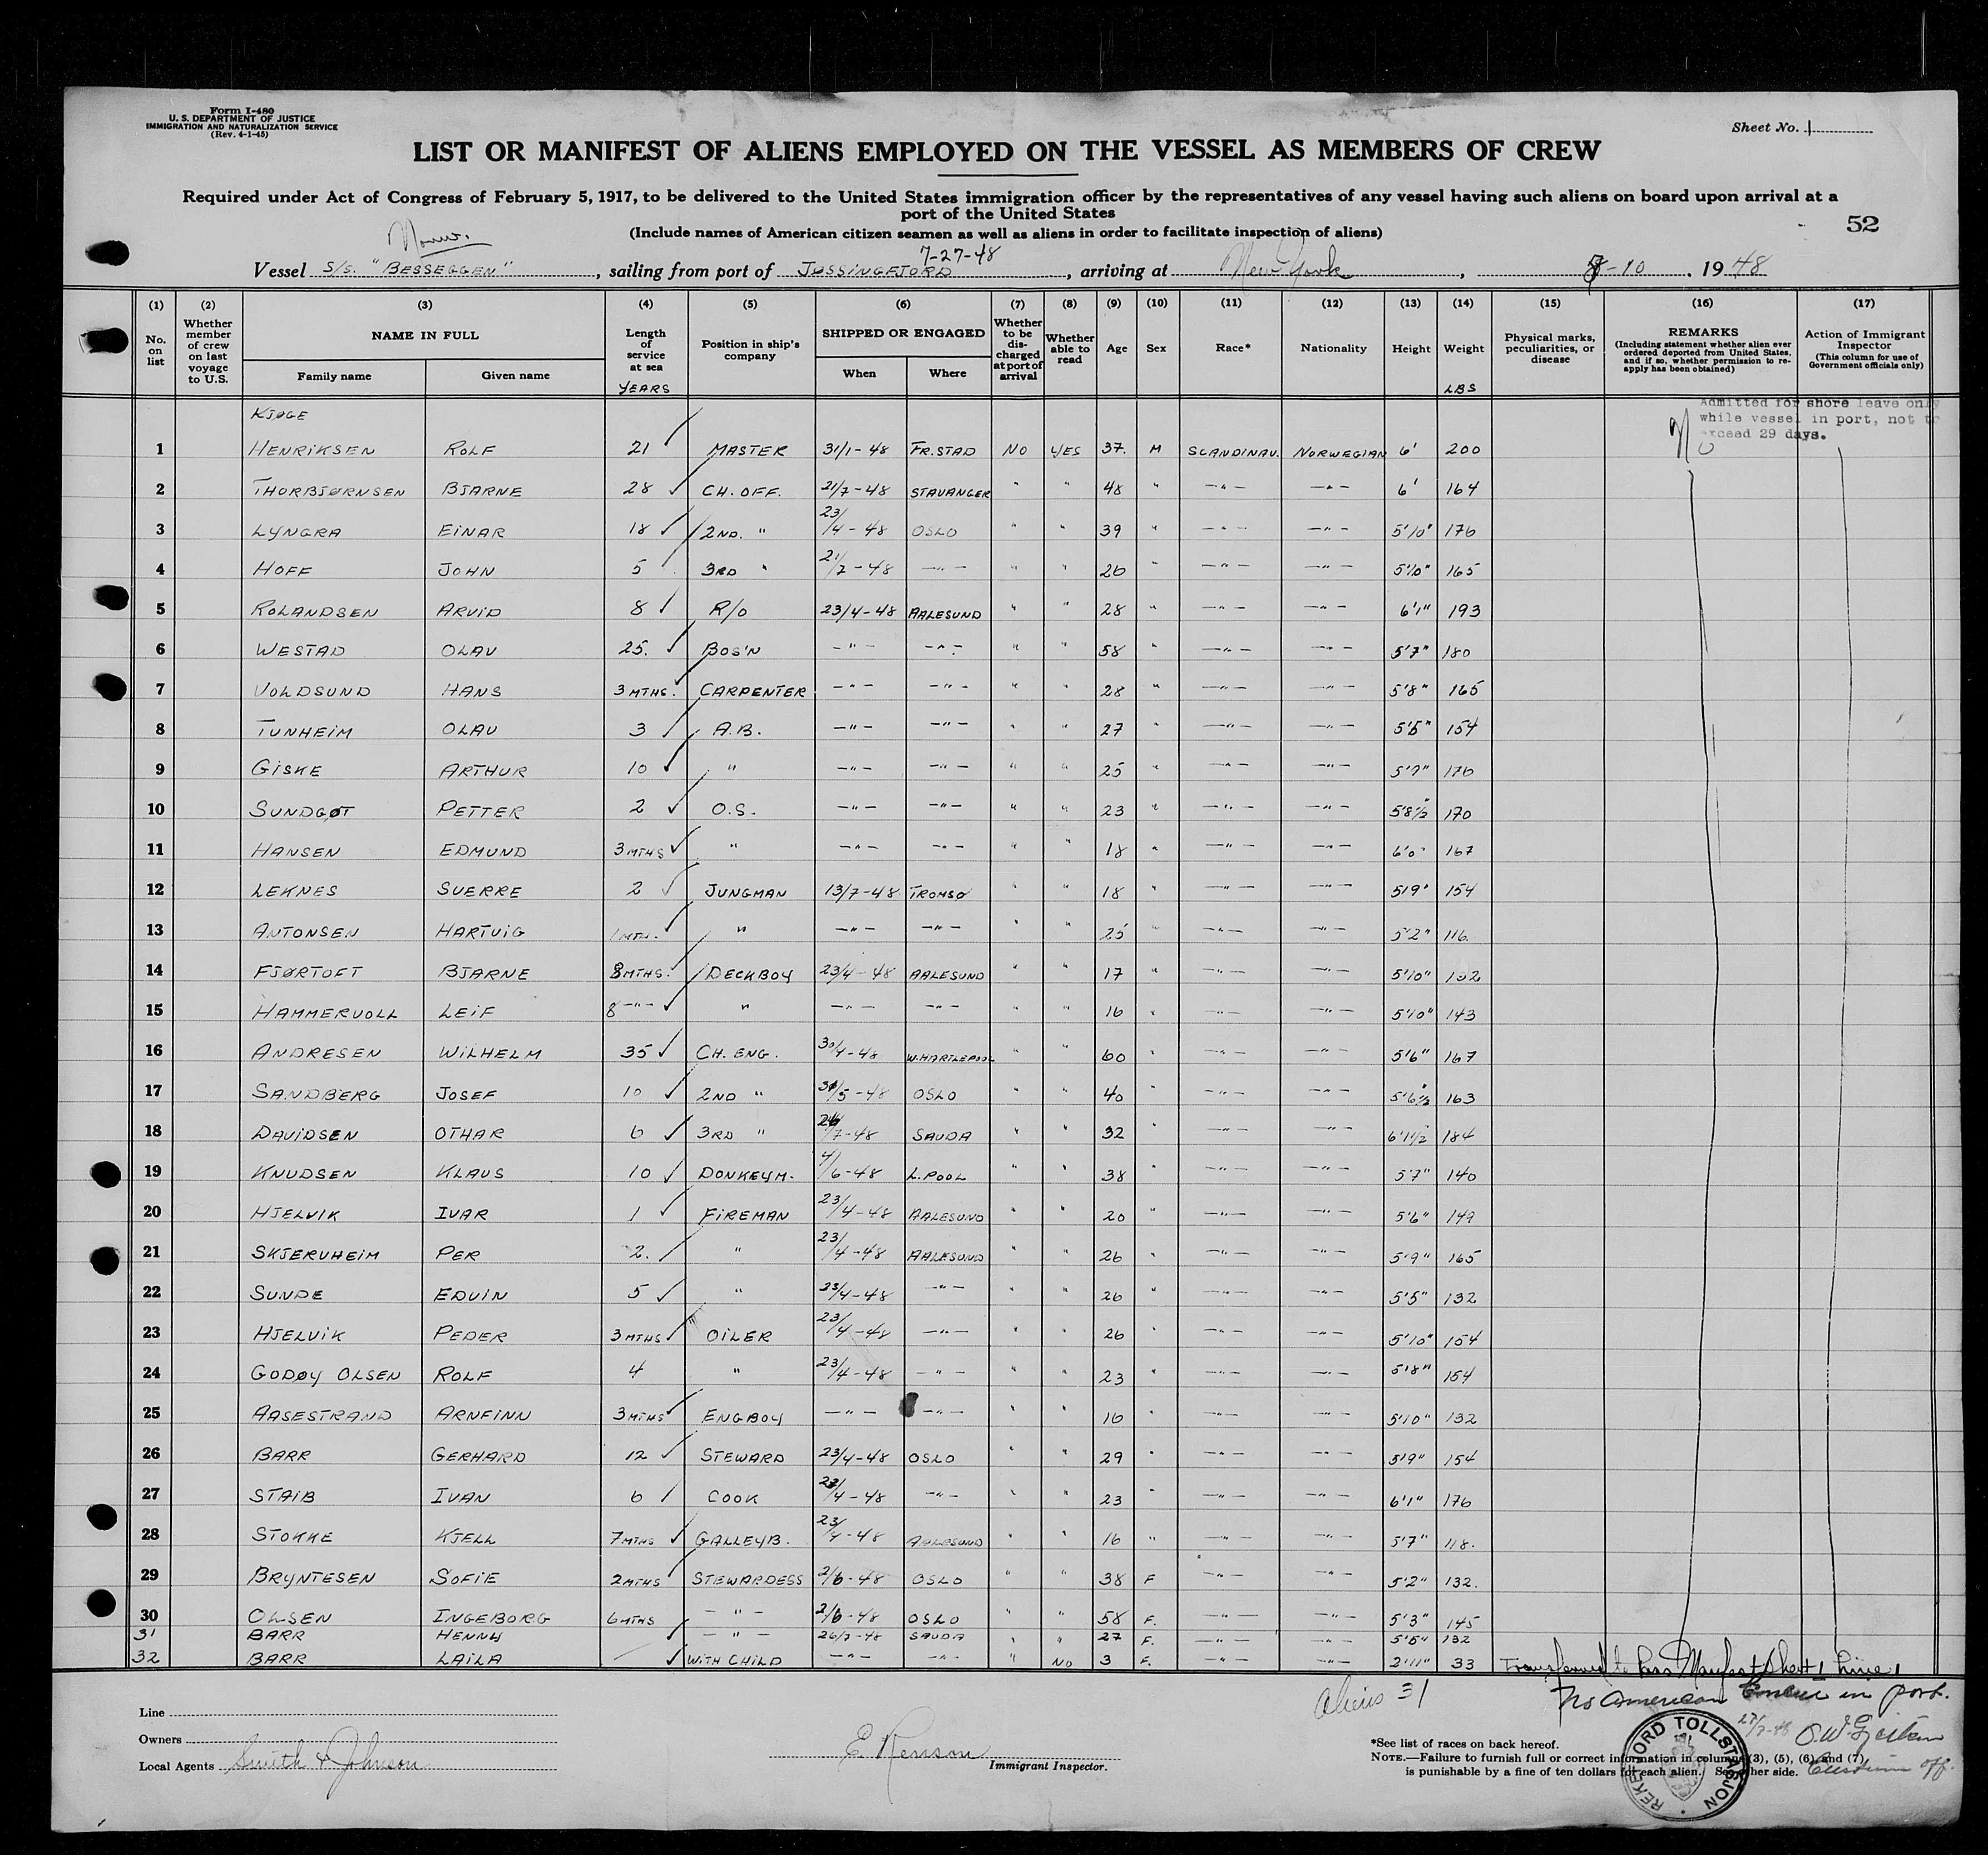 Form I-480
U. S. DEPARTMENT OF JUSTICE
IMMIGRATION AND NATURALIZATION SERVICE
(Rev. 4-1-45)
Sheet No. 1
LIST OR MANIFEST OF ALIENS EMPLOYED ON THE VESSEL AS MEMBERS OF CREW
Required under Act of Congress of February 5, 1917, to be delivered to the United States immigration officer by the representatives of any vessel having such aliens on board upon arrival at a
port of the United States
52
(Include names of American citizen seamen as well as aliens in order to facilitate inspection of aliens)
Norw.
7-27-48
Vessel S/S. "BESSEGGEN", sailing from port of JØSSINGFJORD, arriving at New York, 8-10, 1948
(1) (2) (3) (4) (5) (6) (7) (8) (9) (10) (11) (12) (13) (14) (15) (16) (17)
No. on list
Whether member of crew on last voyage to U.S.
NAME IN FULL
Family name Given name
Length of service at sea
YEARS
Position in ship's company
SHIPPED OR ENGAGED
When Where
Whether to be discharged at port of arrival
Whether able to read
Age
Sex
Race*
Nationality
Height
Weight
LBS
Physical marks, peculiarities, or disease
REMARKS
(Including statement whether alien ever ordered deported from United States, and if so, whether permission to reapply has been obtained)
Action of Immigrant Inspector
(This column for use of Government officials only)
Admitted for shore leave only
while vessel in port, not to
exceed 29 days.
KJØGE
1 HENRIKSEN ROLF 21 MASTER 31/1-48 FR.STAD NO YES 37. M SCANDINAV. NORWEGIAN 6' 200
2 THORBJØRNSEN BJARNE 28 CH. OFF. 21/7-48 STAVANGER " " 48 " -"- -"- 6' 164
3 LYNGRA EINAR 18 2ND. " 23/4-48 OSLO " " 39 " -"- -"- 5'10" 176
4 HOFF JOHN 5 3RD " 21/7-48 -"- " " 26 " -"- -"- 5'10" 165
5 ROLANDSEN ARVID 8 R/O 23/4-48 AALESUND " " 28 " -"- -"- 6'1" 193
6 WESTAD OLAV 25. BOS'N -"- -"- " " 58 " -"- -"- 5'7" 180
7 VOLDSUND HANS 3 MTHS. CARPENTER -"- -"- " " 28 " -"- -"- 5'8" 165
8 TUNHEIM OLAV 3 A.B. -"- -"- " " 27 " -"- -"- 5'5" 154
9 GISKE ARTHUR 10 " -"- -"- " " 25 " -"- -"- 5'9" 176
10 SUNDGØT PETTER 2 O.S. -"- -"- " " 23 " -"- -"- 5'8½" 170
11 HANSEN EDMUND 3 MTHS " -"- -"- " " 18 " -"- -"- 6'0" 167
12 LEKNES SVERRE 2 JUNGMAN 13/7-48 TROMSØ " " 18 " -"- -"- 5'9" 154
13 ANTONSEN HARTVIG 1 MTH. " -"- -"- " " 25 " -"- -"- 5'2" 116.
14 FJØRTOFT BJARNE 8 MTHS. DECKBOY 23/4-48 AALESUND " " 17 " -"- -"- 5'10" 132
15 HAMMERVOLL LEIF 8 -"- " -"- -"- " " 16 " -"- -"- 5'10" 143
16 ANDRESEN WILHELM 35 CH. ENG. 30/4-48 W.HARTLEPOOL " " 60 " -"- -"- 5'6" 167
17 SANDBERG JOSEF 10 2ND " 31/5-48 OSLO " " 40 " -"- -"- 5'6½" 163
18 DAVIDSEN OTHAR 6 3RD " 26/7-48 SAUDA " " 32 " -"- -"- 6'1½" 184
19 KNUDSEN KLAUS 10 DONKEYM. 4/6-48 L.POOL " " 38 " -"- -"- 5'7" 140
20 HJELVIK IVAR 1 FIREMAN 23/4-48 AALESUND " " 20 " -"- -"- 5'6" 149
21 SKJERVHEIM PER 2. " 23/4-48 AALESUND " " 26 " -"- -"- 5'9" 165
22 SUNDE EDVIN 5 " 23/4-48 -"- " " 26 " -"- -"- 5'5" 132
23 HJELVIK PEDER 3 MTHS OILER 23/4-48 -"- " " 26 " -"- -"- 5'10" 154
24 GODØY OLSEN ROLF 4 " 23/4-48 -"- " " 23 " -"- -"- 5'8" 154
25 AASESTRAND ARNFINN 3 MTHS ENGBOY -"- -"- " " 16 " -"- -"- 5'10" 132
26 BARR GERHARD 12 STEWARD 23/4-48 OSLO " " 29 " -"- -"- 5'9" 154
27 STAIB IVAN 6 COOK 23/4-48 -"- " " 23 " -"- -"- 6'1" 176
28 STOKKE KJELL 7 MTHS GALLEYB. 23/4-48 AALESUND " " 16 " -"- -"- 5'7" 118.
29 BRYNTESEN SOFIE 2 MTHS STEWARDESS 2/6-48 OSLO " " 38 F -"- -"- 5'2" 132.
30 OLSEN INGEBORG 6 MTHS -"- 2/6-48 OSLO " " 58 F. -"- -"- 5'3" 145
31 BARR HENNY -"- 26/7-48 SAUDA " " 27 F. -"- -"- 5'5" 132
32 BARR LAILA WITH CHILD -"- -"- " NO 3 F. -"- -"- 2'11" 33 Transferred to Pass Manifest Sheet 1 Line 1
Aliens 31
No American Consul in port.
27/7-48
Customs off.
REKEFJORD TOLLSTASJON
Line
Owners
Local Agents Smith & Johnson
E Renson
Immigrant Inspector.
*See list of races on back hereof.
NOTE.—Failure to furnish full or correct information in columns (3), (5), (6) and (7)
is punishable by a fine of ten dollars for each alien. See other side.